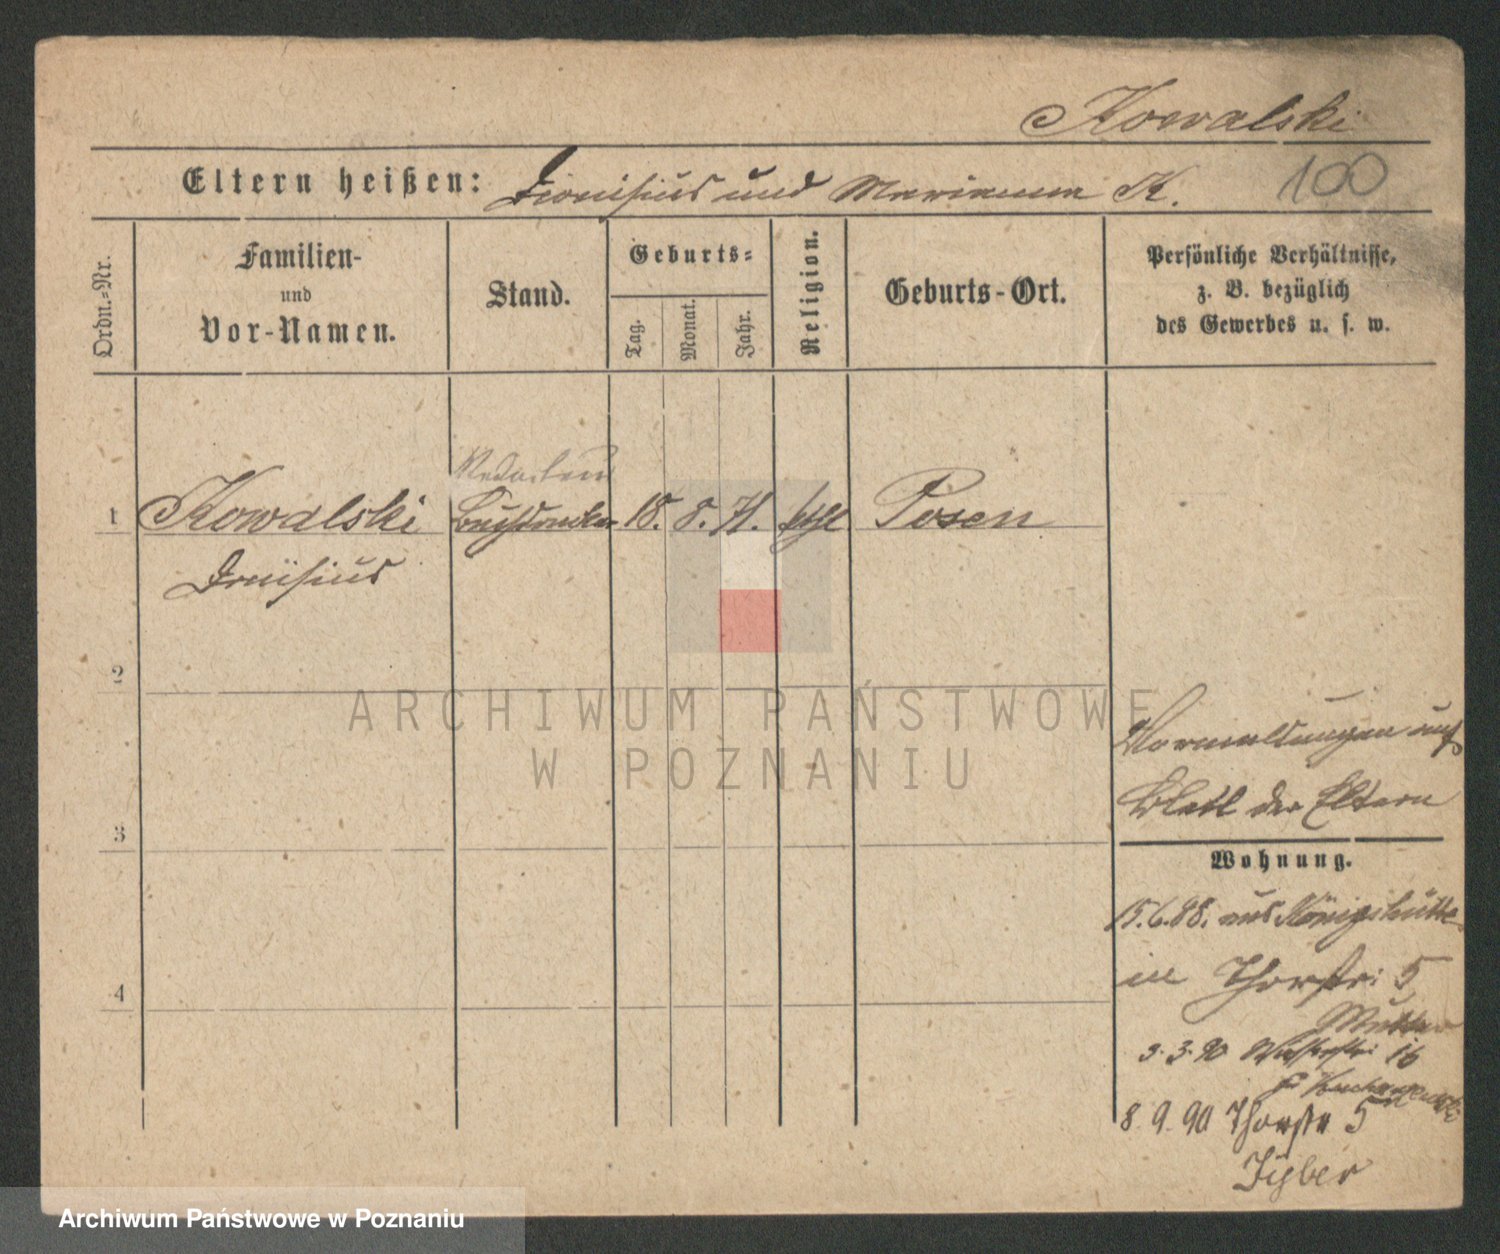 Kowalski
Eltern heißen: Dionisius und Marianna K.
100
Ordn.-Nr.
Familien-
und
Vor-Namen.
Stand.
Geburts-
Tag.
Monat.
Jahr.
Religion.
Geburts-Ort.
Persönliche Verhältnisse,
z. B. bezüglich
des Gewerbes u. s. w.
Redakteur
1 Kowalski Buchdrucker 18. 8. 71. kath Posen
Dionisius
2
3
4
ARCHIWUM PAŃSTWOWE
W POZNANIU
Vormeldungen auf
Blatt der Eltern
Wohnung.
15.6.88. aus Königshütte
in Thorstr: 5
Mutter
3.3.90 16
8.9.90 Thorstr 5
Archiwum Państwowe w Poznaniu